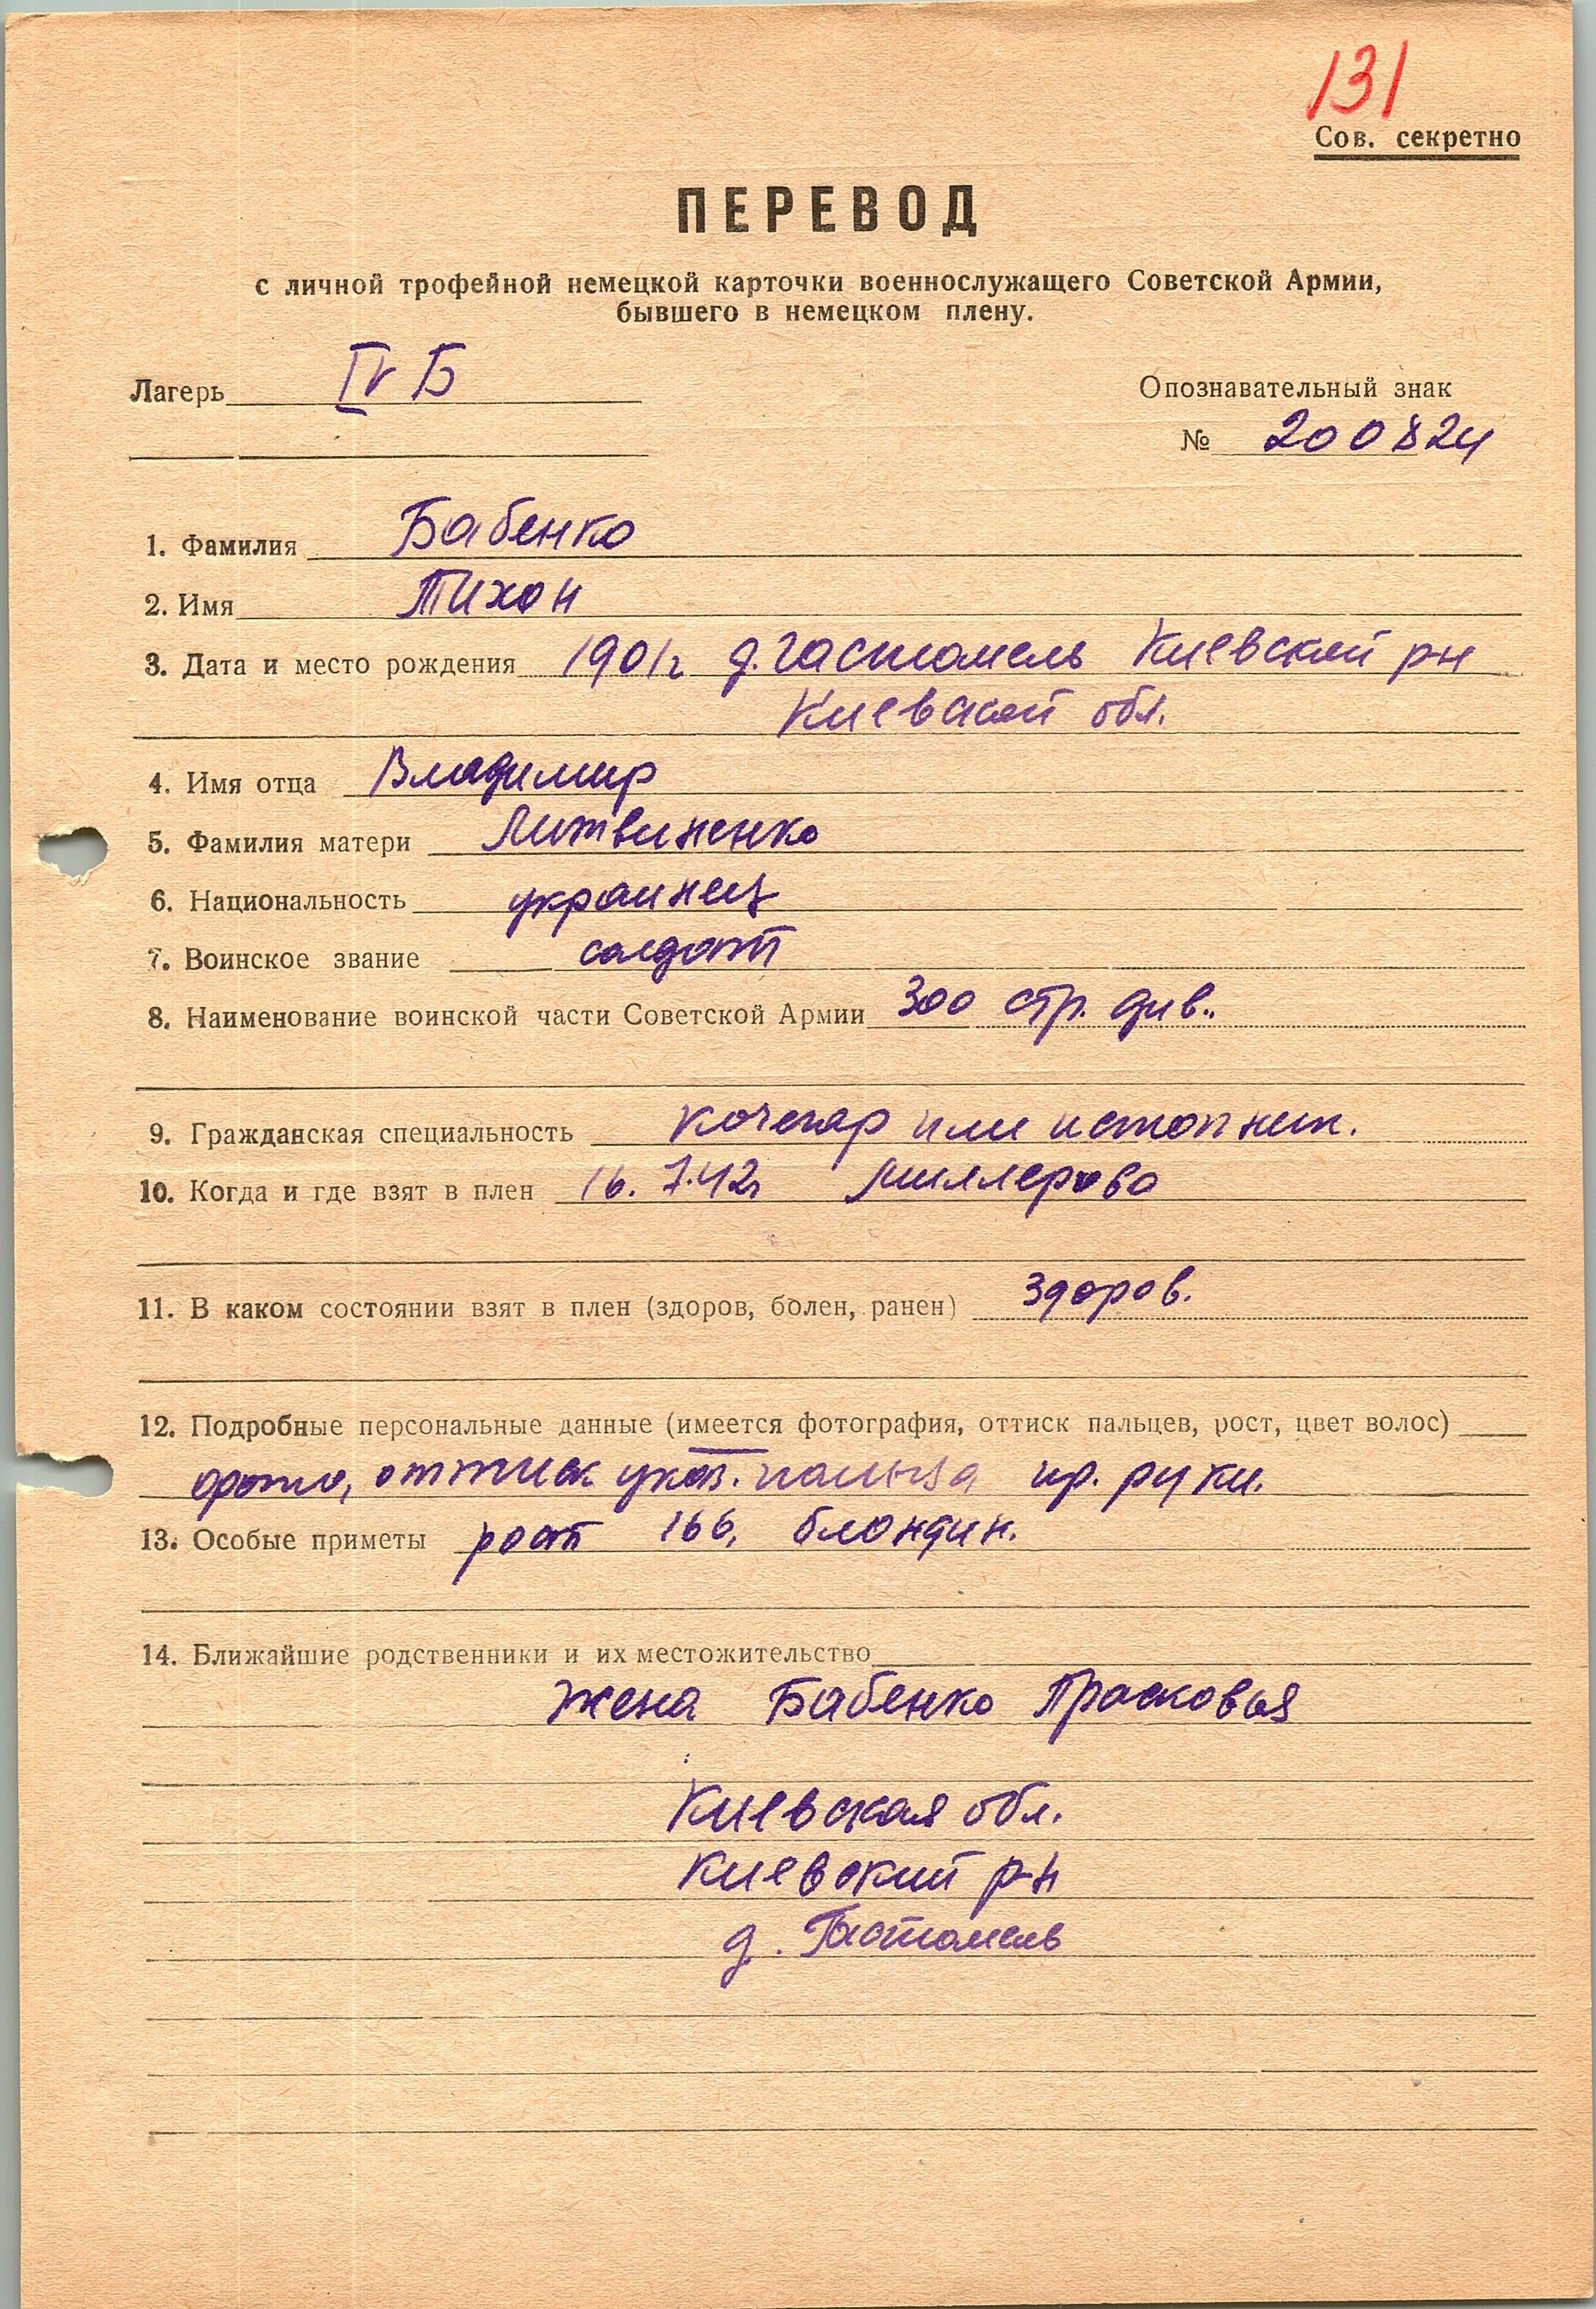 131
Сов. секретно
ПЕРЕВОД
с личной трофейной немецкой карточки военнослужащего Советской Армии,
бывшего в немецком плену.
Лагерь IV Б
Опознавательный знак
№ 200824
1. Фамилия Бабенко
2. Имя Тихон
3. Дата и место рождения 1901г. д. Гастомель Киевский рн
Киевской обл.
4. Имя отца Владимир
5. Фамилия матери Литвиненко
6. Национальность украинец
7. Воинское звание солдат
8. Наименование воинской части Советской Армии 300 стр. див..
9. Гражданская специальность кочегар или истопник.
10. Когда и где взят в плен 16. 7. 42г Миллерово
11. В каком состоянии взят в плен (здоров, болен, ранен) здоров.
12. Подробные персональные данные (имеется фотография, оттиск пальцев, рост, цвет волос)
фото, оттиск указ. пальца пр. руки.
13. Особые приметы рост 166, блондин.
14. Ближайшие родственники и их местожительство
жена Бабенко Прасковья
Киевская обл.
Киевский р-н
д. Гастомель